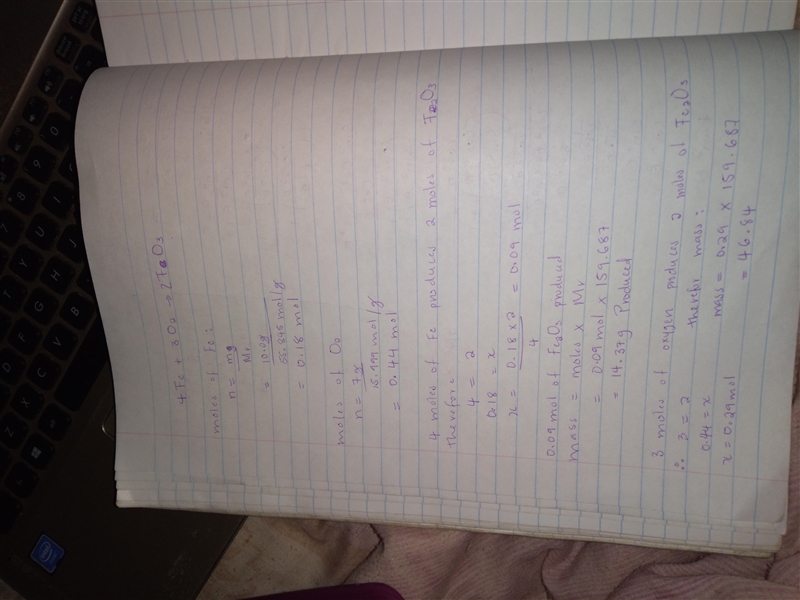 4Fe + 3O2 → 2Fe2O3
moles of Fe:
n = mg
Mr
= 10.0g
55.845 mol/g
= 0.18 mol
moles of O2
n = 7g
15.999 mol/g
= 0.44 mol
4 moles of Fe produces 2 moles of Fe2O3
therefore
4 = 2
0.18 = x
x = 0.18 x 2 = 0.09 mol
4
0.09 mol of Fe2O3 produced
mass = moles x Mr
= 0.09 mol x 159.687
= 14.37g Produced
3 moles of oxygen produces 2 moles of Fe2O3
∴ 3 = 2 therefor mass:
0.44 = x mass = 0.29 x 159.687
x = 0.29 mol = 46.84